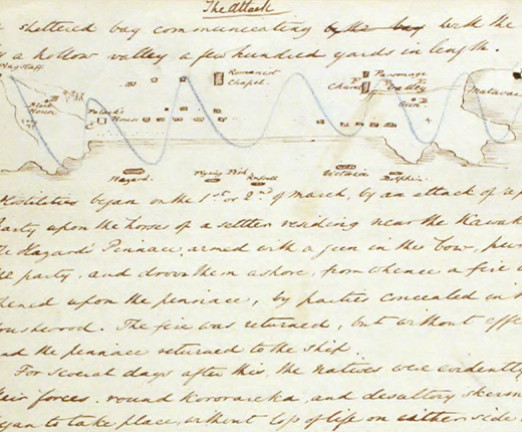 The Attack
sheltered bay communicating by the bay with the
a hollow valley a few hundred yards in length.
Flagstaff
Romanist Chapel.
Parsonage
Church
Valley
Gun
Matavai
Block House
Polack's House
Hazard.
Flying Fish
Russell
Victoria
Dolphin.
Hostilities began on the 1st or 2nd of March, by an attack of a
party upon the horses of a settler residing near the Kawak
Hazard's Pinnace, armed with a gun in the bow,
party, and drove them ashore, from whence a fire
opened upon the pinnace, by parties concealed in
brushwood. The fire was returned, but without
and the pinnace returned to the ship.
For several days after this, the natives were evidently
their forces, round Kororareka, and desultory
began to take place, without loss of life on either side